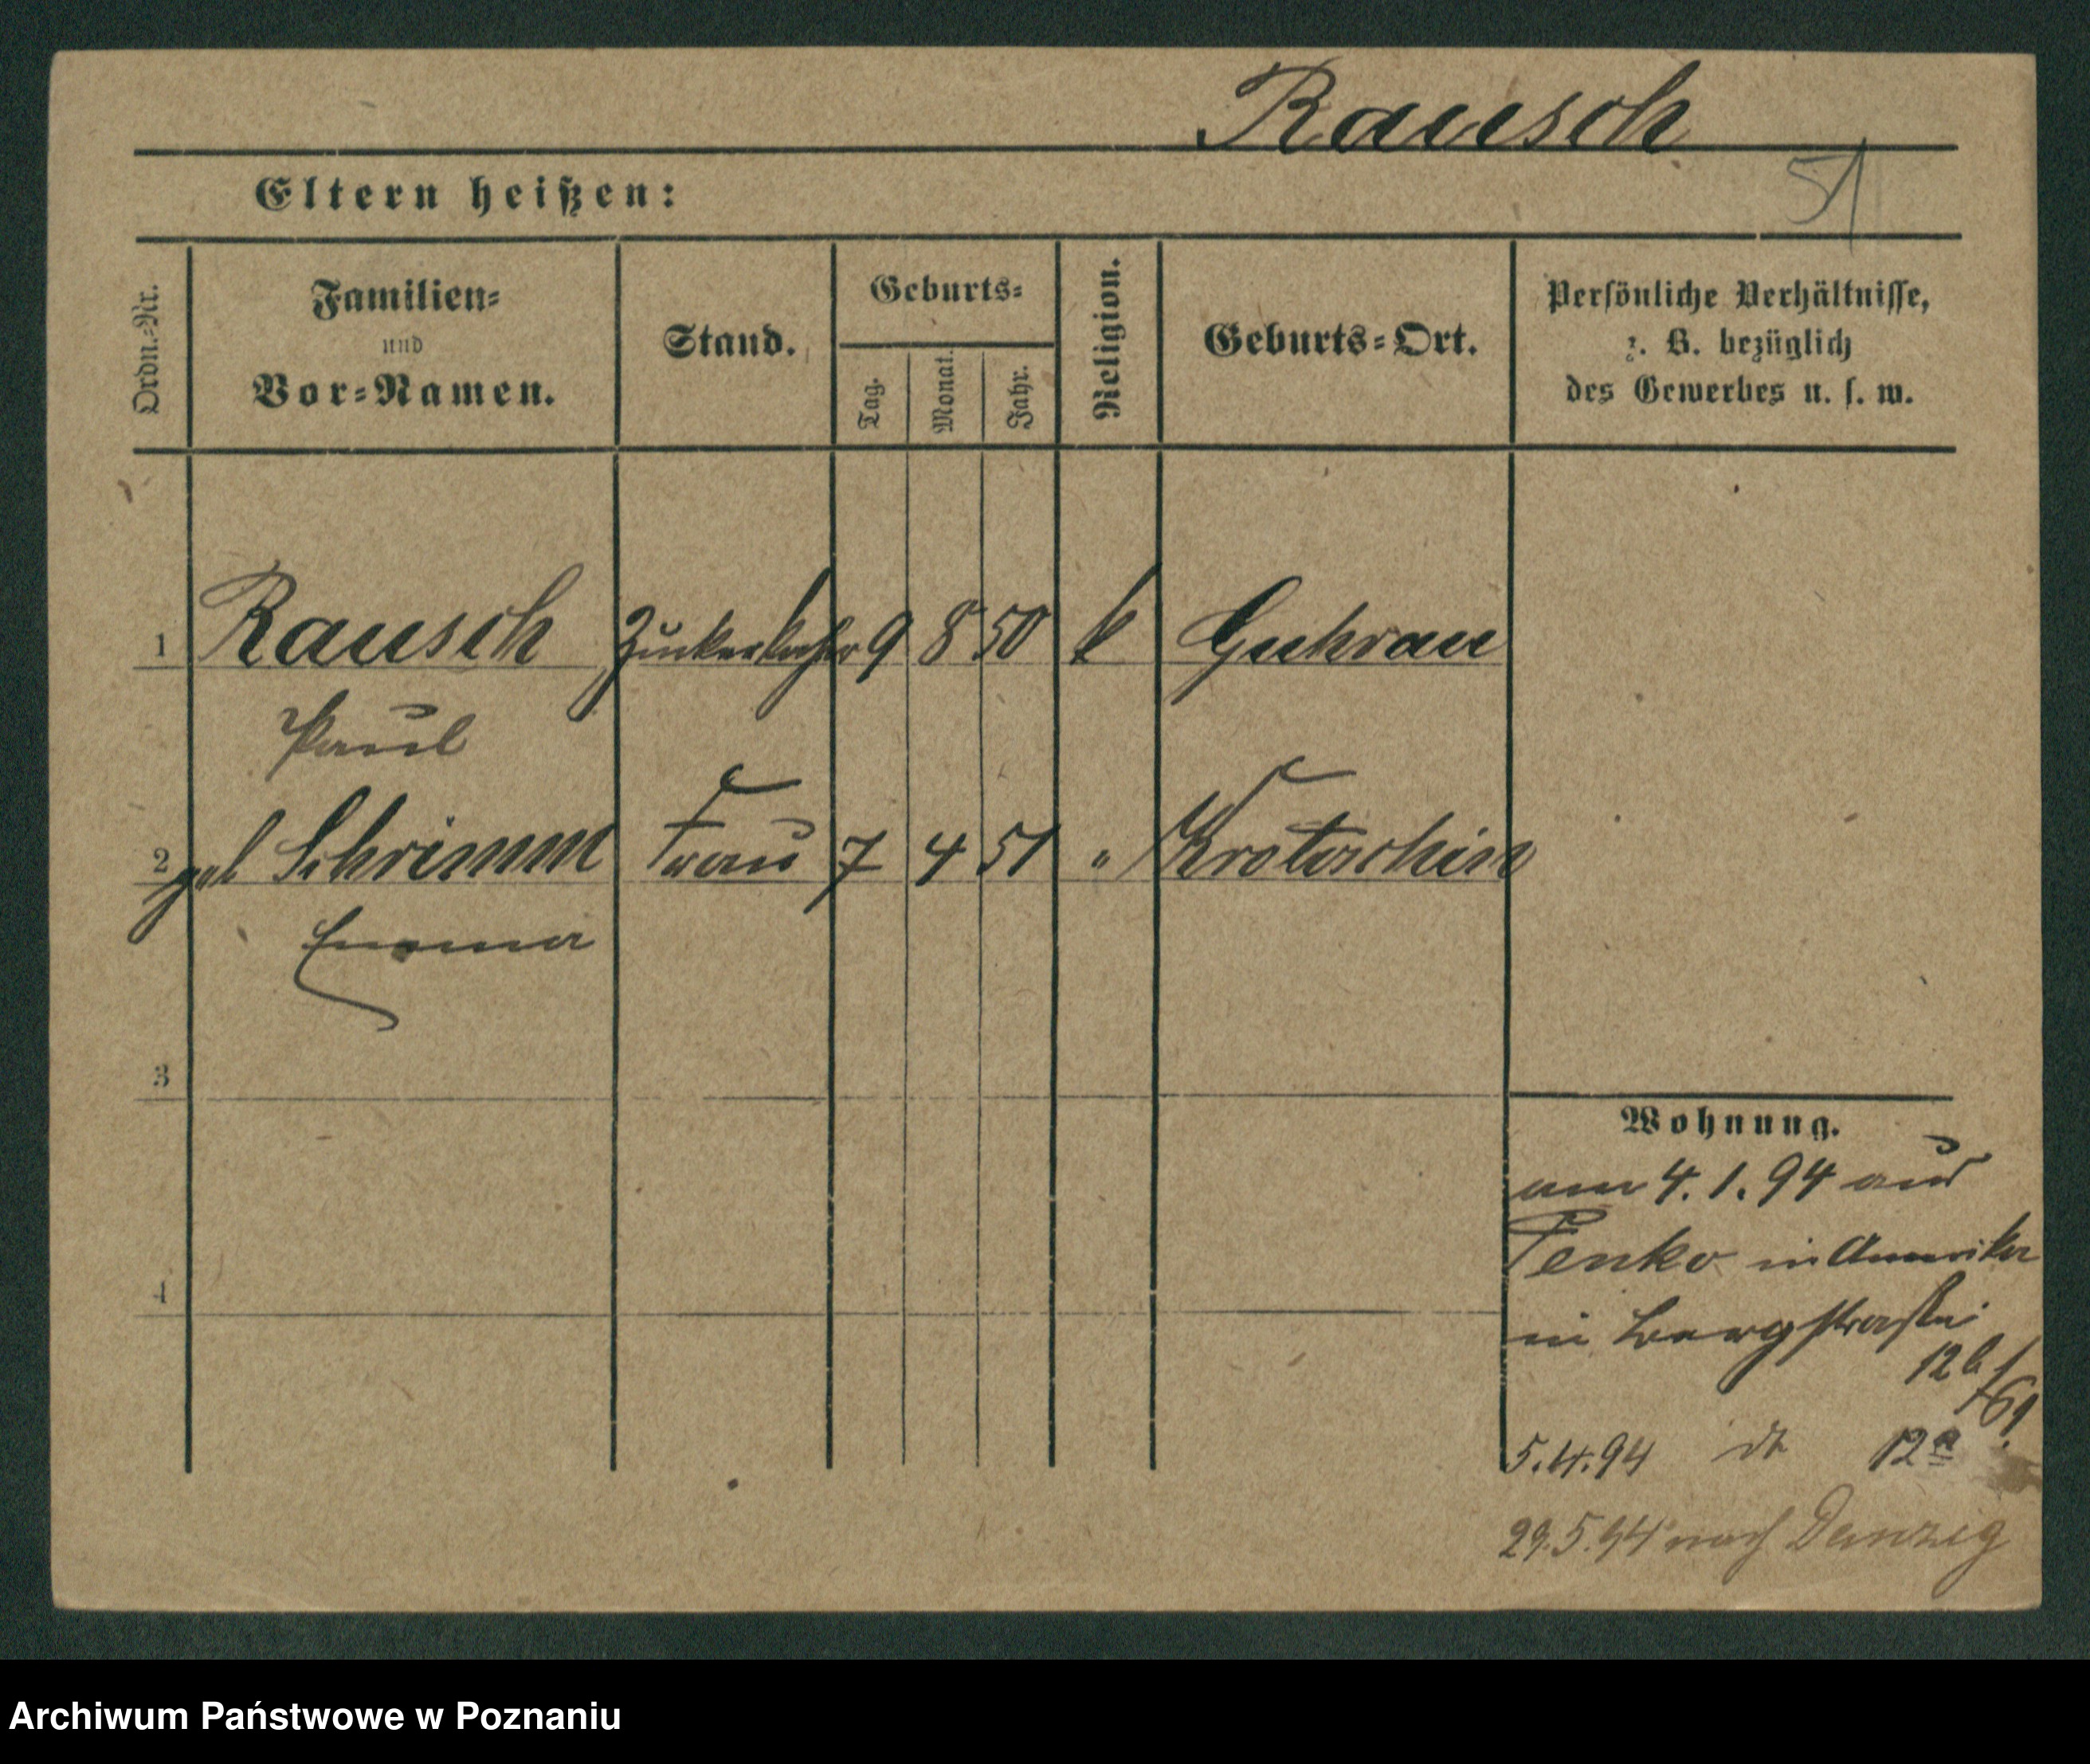 Rausch
51
Eltern heißen:
Ordn.=Nr.
Familien=
und
Vor=Namen.
Stand.
Geburts=
Tag.
Monat.
Jahr.
Religion.
Geburts=Ort.
Persönliche Verhältnisse,
z. B. bezüglich
des Gewerbes u. s. w.
1 Rausch Zuckerkocher 9 8 50 k Guhrau
Paul
2 geb Schrimm Frau 7 4 51 " Krotoschin
Emma
3
4
Wohnung.
am 4.1.94 aus
in Amerika
in Bergstraße
12b/
5.4.94 do 12a
29.5.94 nach Danzig
Archiwum Państwowe w Poznaniu